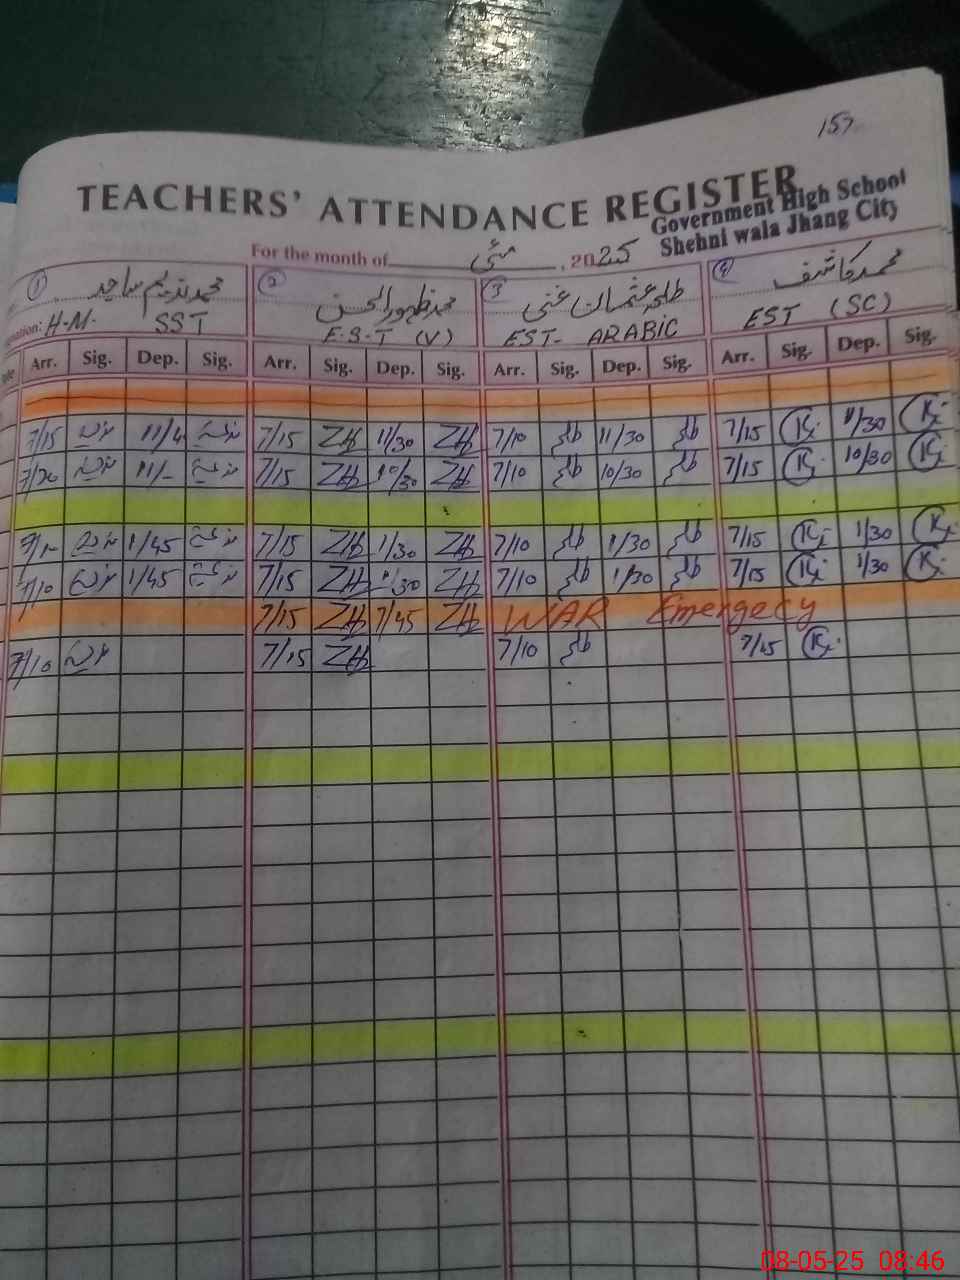 157
TEACHERS' ATTENDANCE REGISTER
Government High School
Shehni wala Jhang City
For the month of مئی, 2025
① محمد ندیم ساجد ② محمد ظہور الحسن ③ طلحہ عثمان غنی ④ محمد کاشف
nation: H-M- SST E.S.T (V) EST- ARABIC EST (SC)
Arr. Sig. Dep. Sig. Arr. Sig. Dep. Sig. Arr. Sig. Dep. Sig. Arr. Sig. Dep. Sig.
7/15 11/4 7/15 ZH 11/30 ZH 7/10 11/30 7/15 K 11/30 K
11/- 7/15 ZH 10/30 ZH 7/10 10/30 7/15 K 10/30 K
1/45 7/15 ZH 1/30 ZH 7/10 1/30 7/15 K 1/30 K
7/10 1/45 7/15 ZH 1/30 ZH 7/10 1/30 7/15 K 1/30 K
7/15 ZH 7/45 ZH WAR Emergecy
7/10 7/15 ZH 7/10 7/15 K
08-05-25 08:46